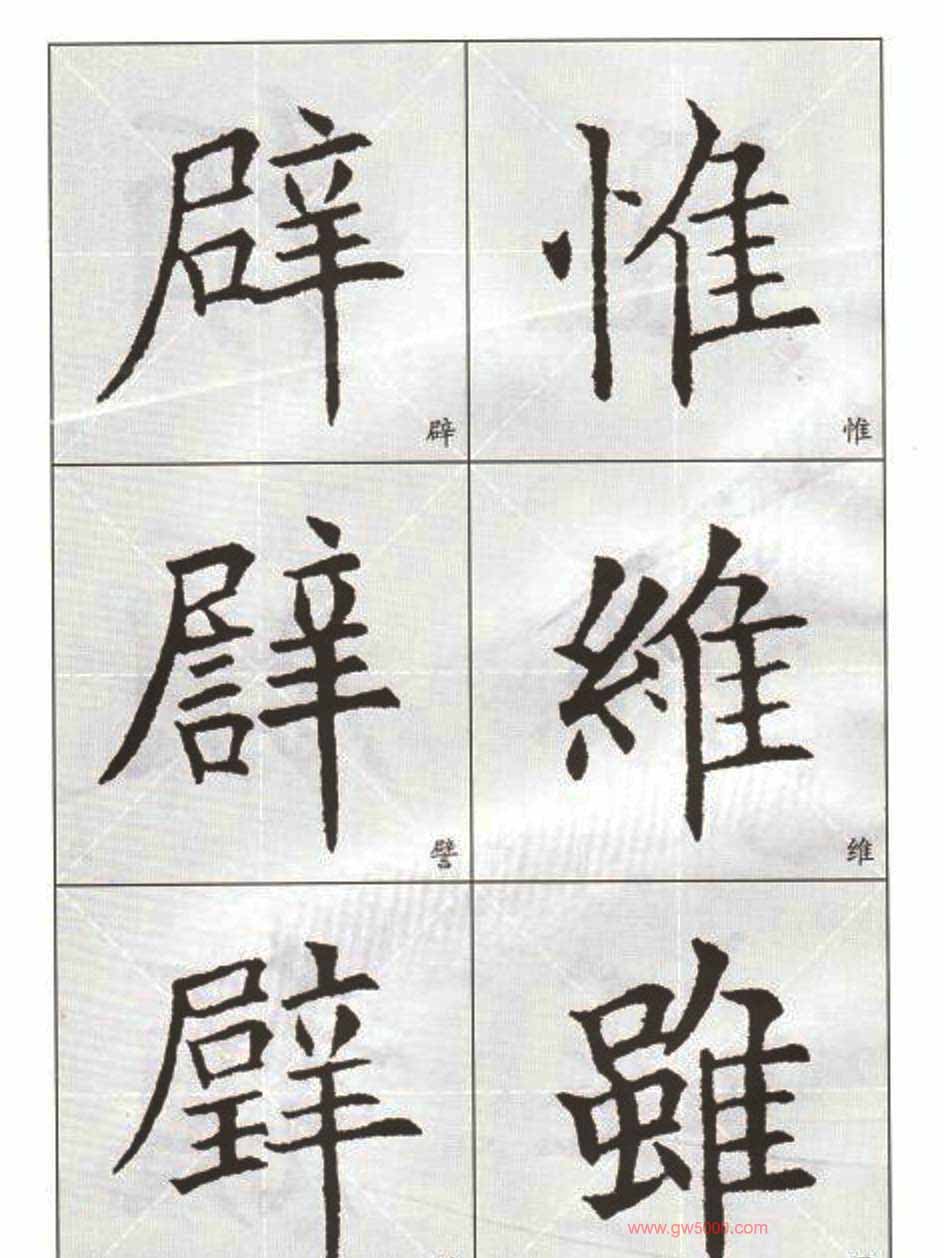 辟 惟
辟 惟
譬 維
譬 维
璧 雖
www.gw5000.com